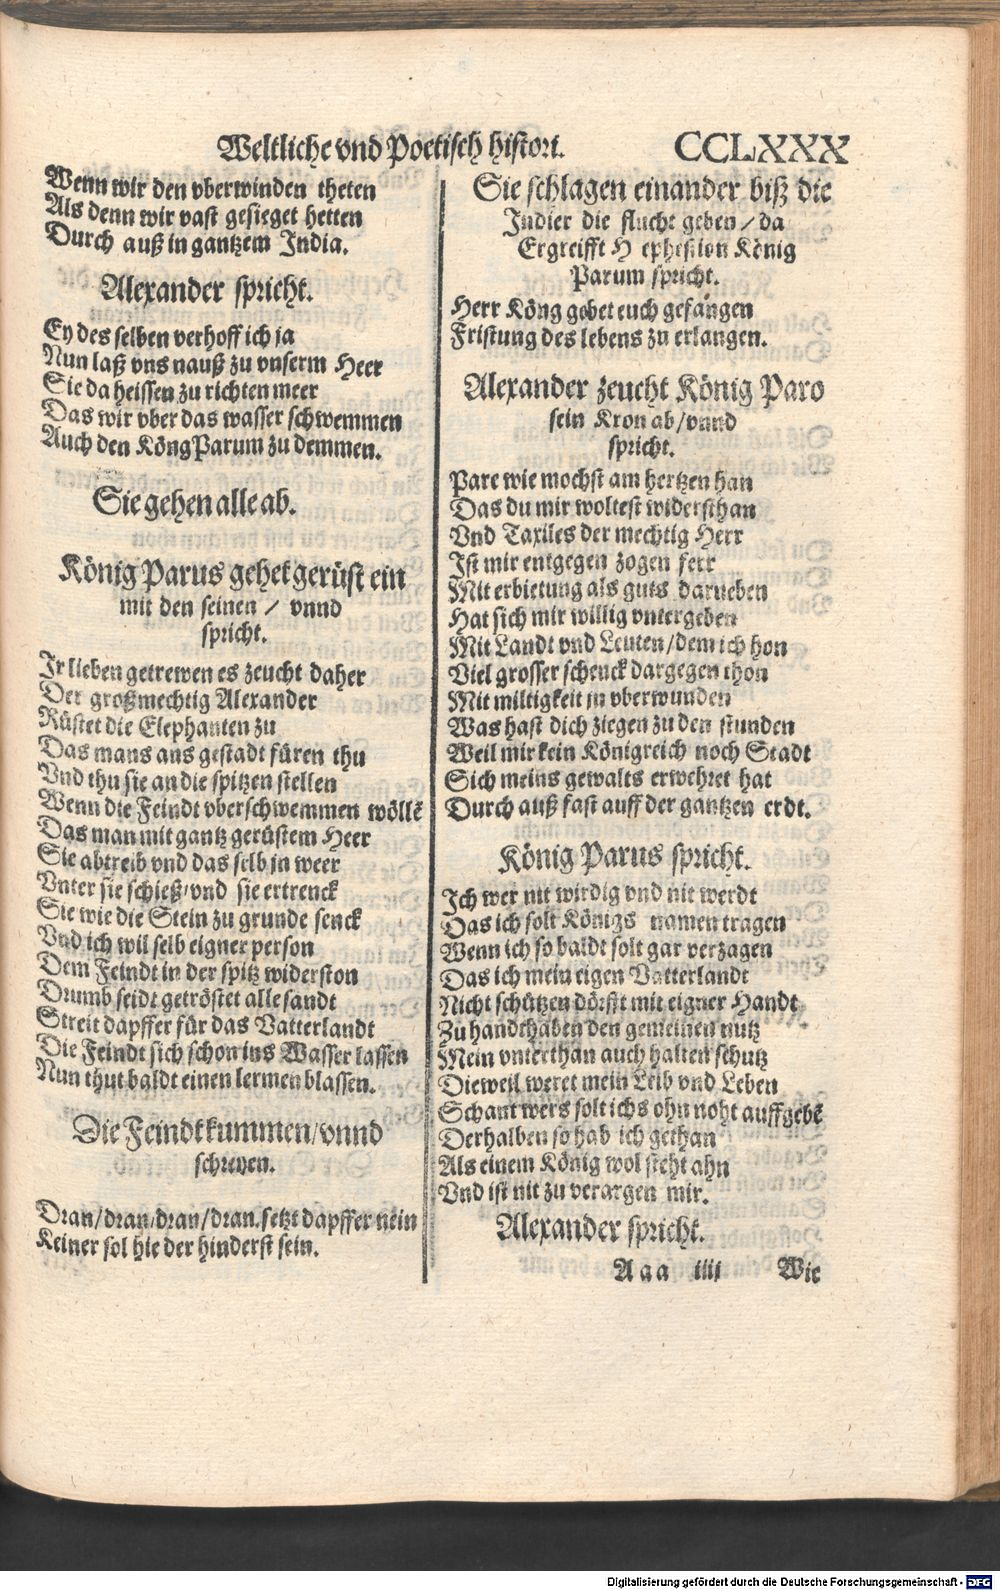 Weltliche vnd Poetisch histori. CCLXXX
Wenn wir den vberwinden theten
Als denn wir vast gesieget hetten
Durch auß in gantzem India.
Alexander spricht.
Ey des selben verhoff ich ja
Nun laß vns nauß zu vnserm Heer
Sie da heissen zu richten meer
Das wir vber das wasser schwemmen
Auch den Köng Parum zu demmen.
Sie gehen alle ab.
König Parus gehet gerüst ein
mit den seinen / vnnd
spricht.
Ir lieben getrewen es zeucht daher
Der großmechtig Alexander
Rüstet die Elephanten zu
Das mans ans gestadt füren thu
Vnd thu sie an die spitzen stellen
Wenn die Feindt vberschwemmen wöllē
Das man mit gantz gerüstem Heer
Sie abtreib vnd das selb jn weer
Vnter sie schieß/vnd sie ertrenck
Sie wie die Stein zu grunde senck
Vnd ich wil selb eigner person
Dem Feindt in der spitz widerston
Drumb seidt getröstet alle sandt
Streit dapffer für das Vatterlandt
Die Feindt sich schon ins Wasser lassen
Nun thut baldt einen lermen blassen.
Die Feindt kummen/vnnd
schreyen.
Dran/dran/dran/dran.setzt dapffer nein
Keiner sol hie der hinderst sein.
Sie schlagen einander biß die
Indier die flucht geben / da
Ergreifft Hephestion König
Parum spricht.
Herr Köng gebet euch gefangen
Fristung des lebens zu erlangen.
Alexander zeucht König Paro
sein Kron ab/vnnd
spricht.
Pare wie mochst am hertzen han
Das du mir woltest widersthan
Vnd Taxiles der mechtig Herr
Ist mir entgegen zogen ferr
Mit erbietung als guts darneben
Hat sich mir willig vntergeben
Mit Landt vnd Leuten/dem ich hon
Viel grosser schenck dargegen thon
Mit miltigkeit jn vberwunden
Was hast dich ziegen zu den stunden
Weil mir kein Königreich noch Stadt
Sich meins gewalts erwehret hat
Durch auß fast auff der gantzen erdt.
König Parus spricht.
Ich wer nit wirdig vnd nit werdt
Das ich solt Königs namen tragen
Wenn ich so baldt solt gar verzagen
Das ich mein eigen Vatterlandt
Nicht schützen dörfft mit eigner Handt
Zu handthaben den gemeinen nutz
Mein vnterthan auch halten schutz
Dieweil weret mein Leib vnd Leben
Schant wers solt ichs ohn noht auffgebē
Derhalben so hab ich gethan
Als einem König wol steht ahn
Vnd ist nit zu verargen mir.
Alexander spricht.
Aaa iiij Wie
Digitalisierung gefördert durch die Deutsche Forschungsgemeinschaft - DFG